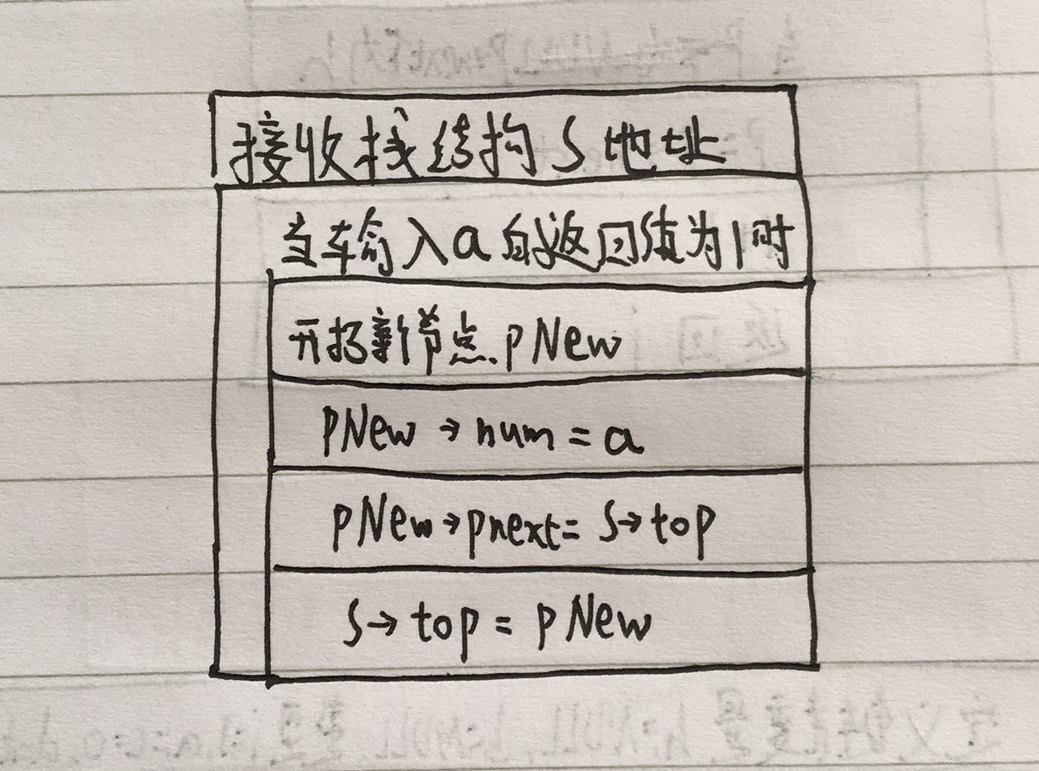 接收栈结构 S 地址
当车输入a的返回值为1时
开拓新节点 pNew
pNew → num = a
pNew → pnext = S → top
S → top = pNew